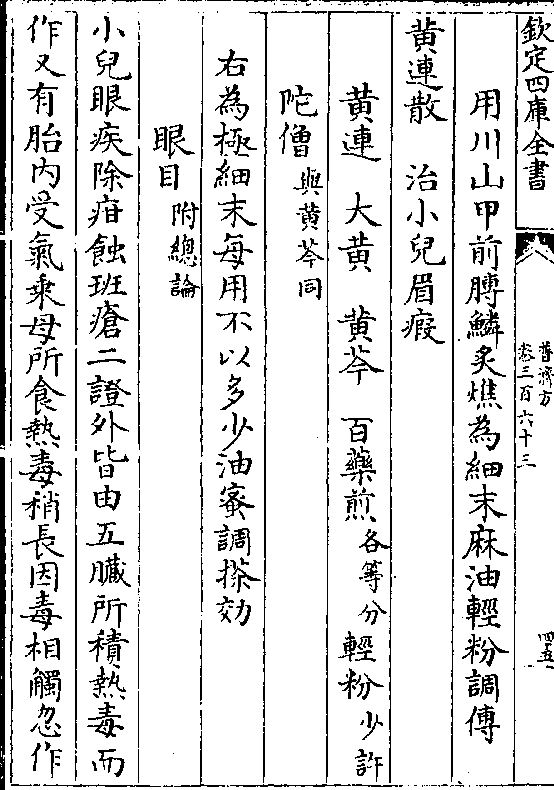 欽定四庫全書
普濟方
卷三百六十三
四五
用川山甲前膊鱗炙燋為細末麻油輕粉調傅
黄連散　治小兒眉瘕
黄連　大黄　黄芩　百藥煎各等分　輕粉少許
陀僧與黄芩同
右為極細末每用不以多少油蜜調搽効
眼目附總論
小兒眼疾除疳蝕班瘡二證外皆由五臟所積熱毒而
作又有胎内受氣乘母所食熱毒稍長因毒相觸忽作